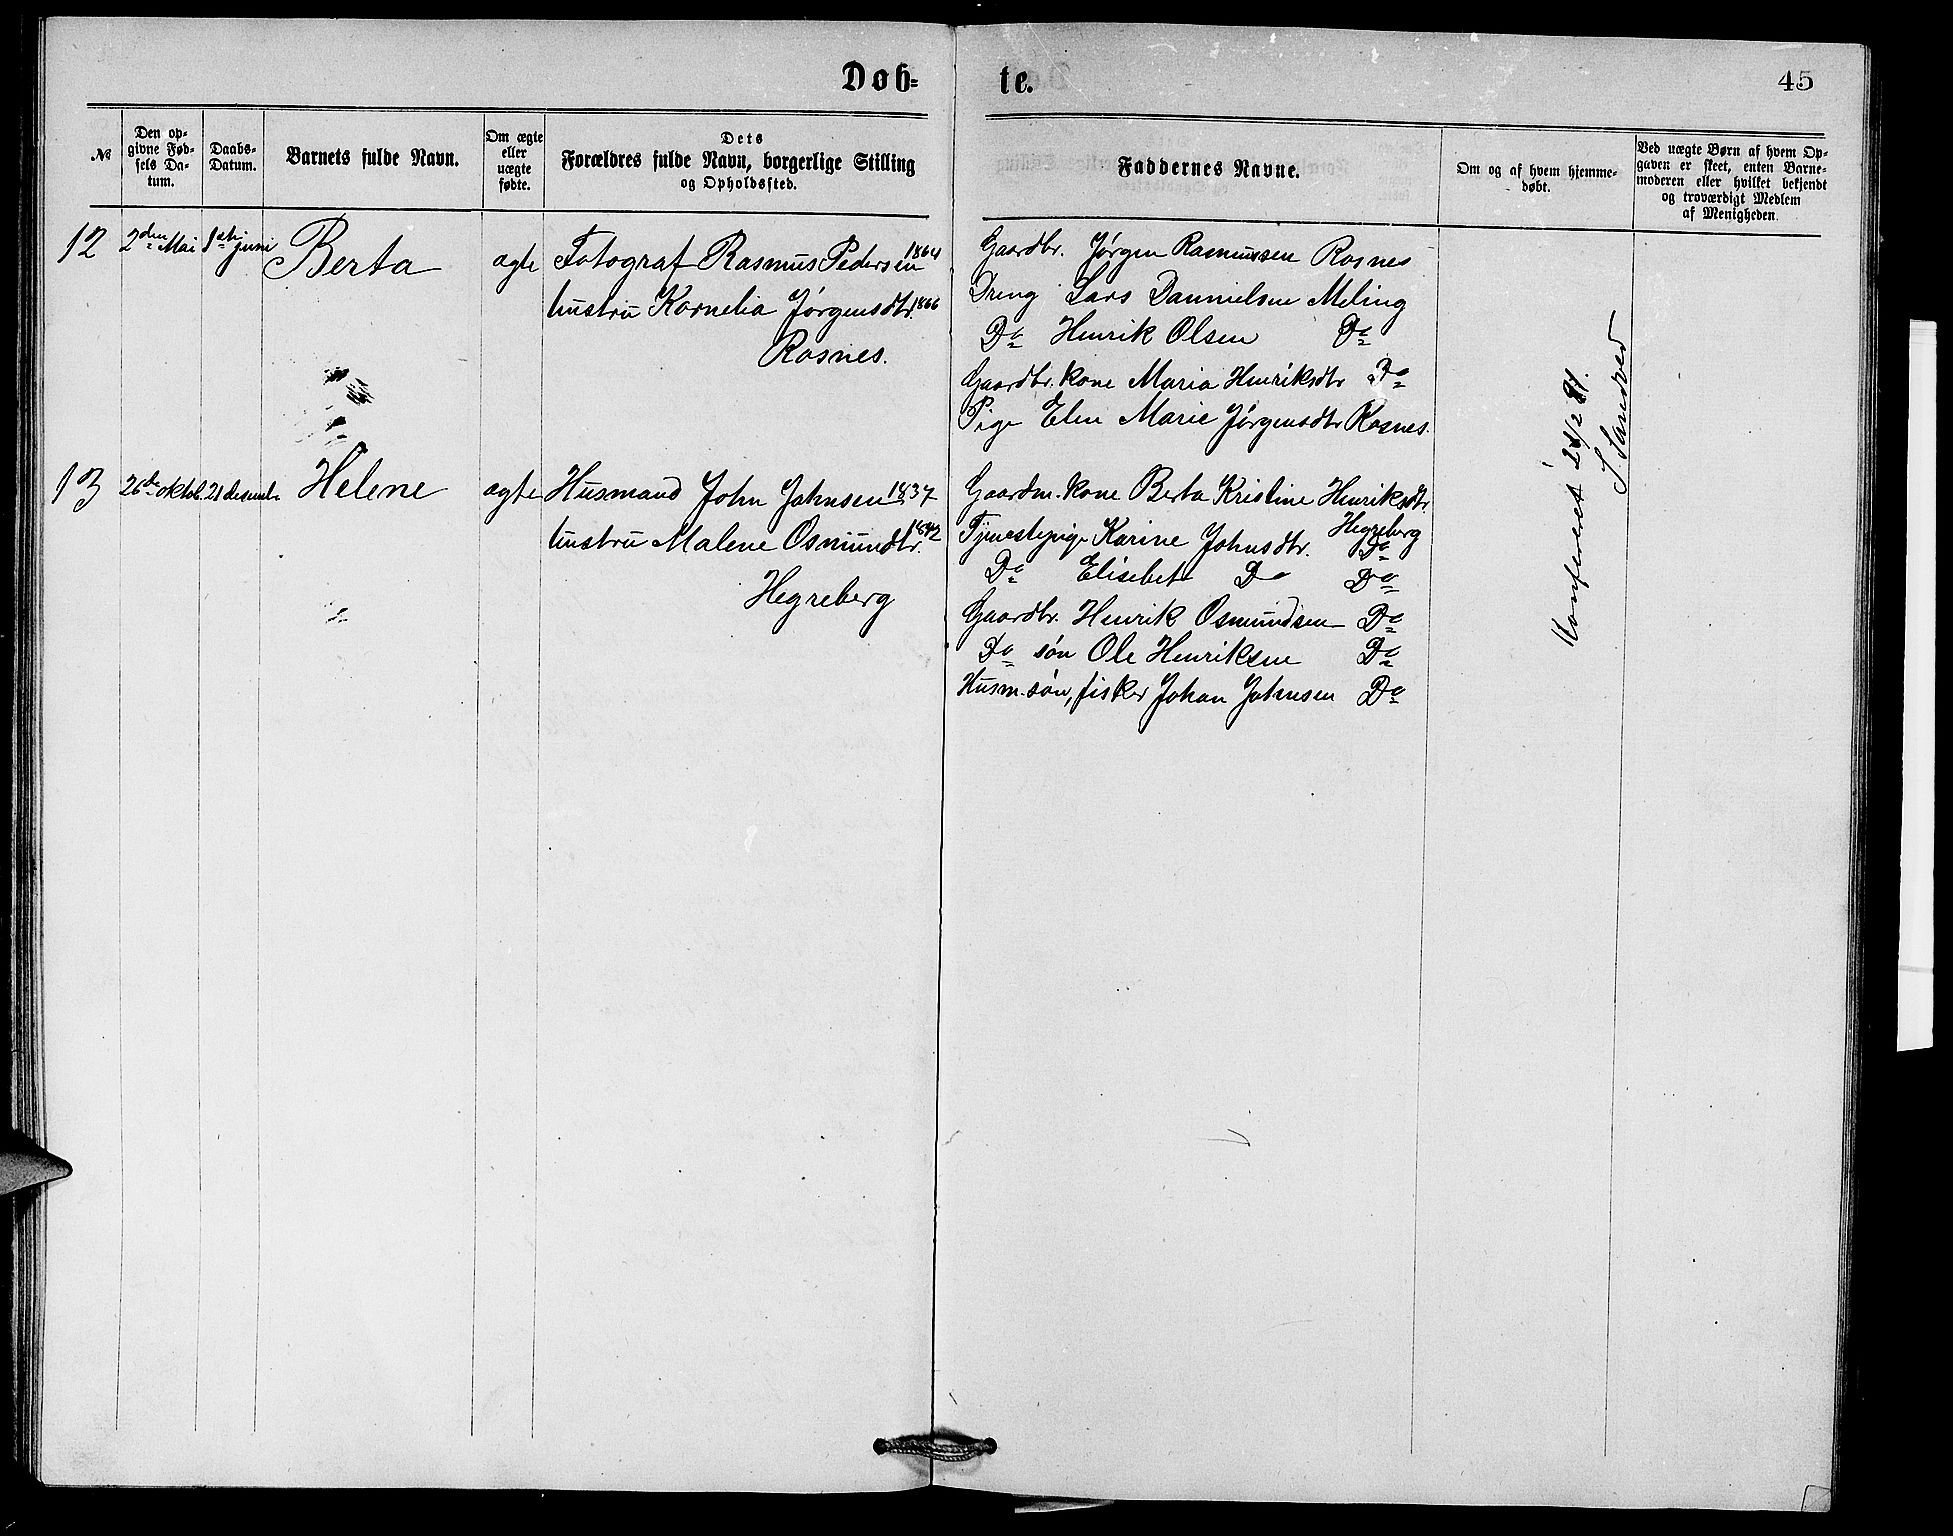 Døb-
te.
45
№
Den op-
givne Fød-
sels Da-
tum.
Daabs-
Datum.
Barnets fulde Navn.
Om ægte
eller
uægte
fødte.
Dets
Forældres fulde Navn, borgerlige Stilling
og Opholdssted.
Faddernes Navne.
Om og af hvem hjemme-
døbt.
Ved uægte Børn af hvem Op-
gaven er skeet, enten Barne-
moderen eller hvilket bekjendt
og troværdigt Medlem
af Menigheden.
12 2den Mai 1ste juni Berta agte Fotograf Rasmus Pedersen 1864
hustru Kornelia Jørgensdtr. 1866
Rosnes.
Gaardbr. Jørgen Rasmussen Rosnes
Dreng Lars Dannielsen Meling
Do Henrik Olsen Do
Gaardbr. kone Maria Henriksdtr Do
Pige Elen Marie Jørgensdtr Rosnes.
13 26de oktob. 21 desemb. Helene agte Husmand John Johnsen 1837
hustru Malene Osmundtr. 1842
Hegreberg
Gaardm. kone Berta Kristine Henriksdtr
Hegreberg
Tjenestepige Karine Johnsdtr. Do
Do Elisebet Do Do
Gaardbr. Henrik Osmundsen Do
Do søn Ole Henriksen Do
Husm. søn, fisker Johan Johnsen Do
Konfereret 24/2 91.
S Sandved